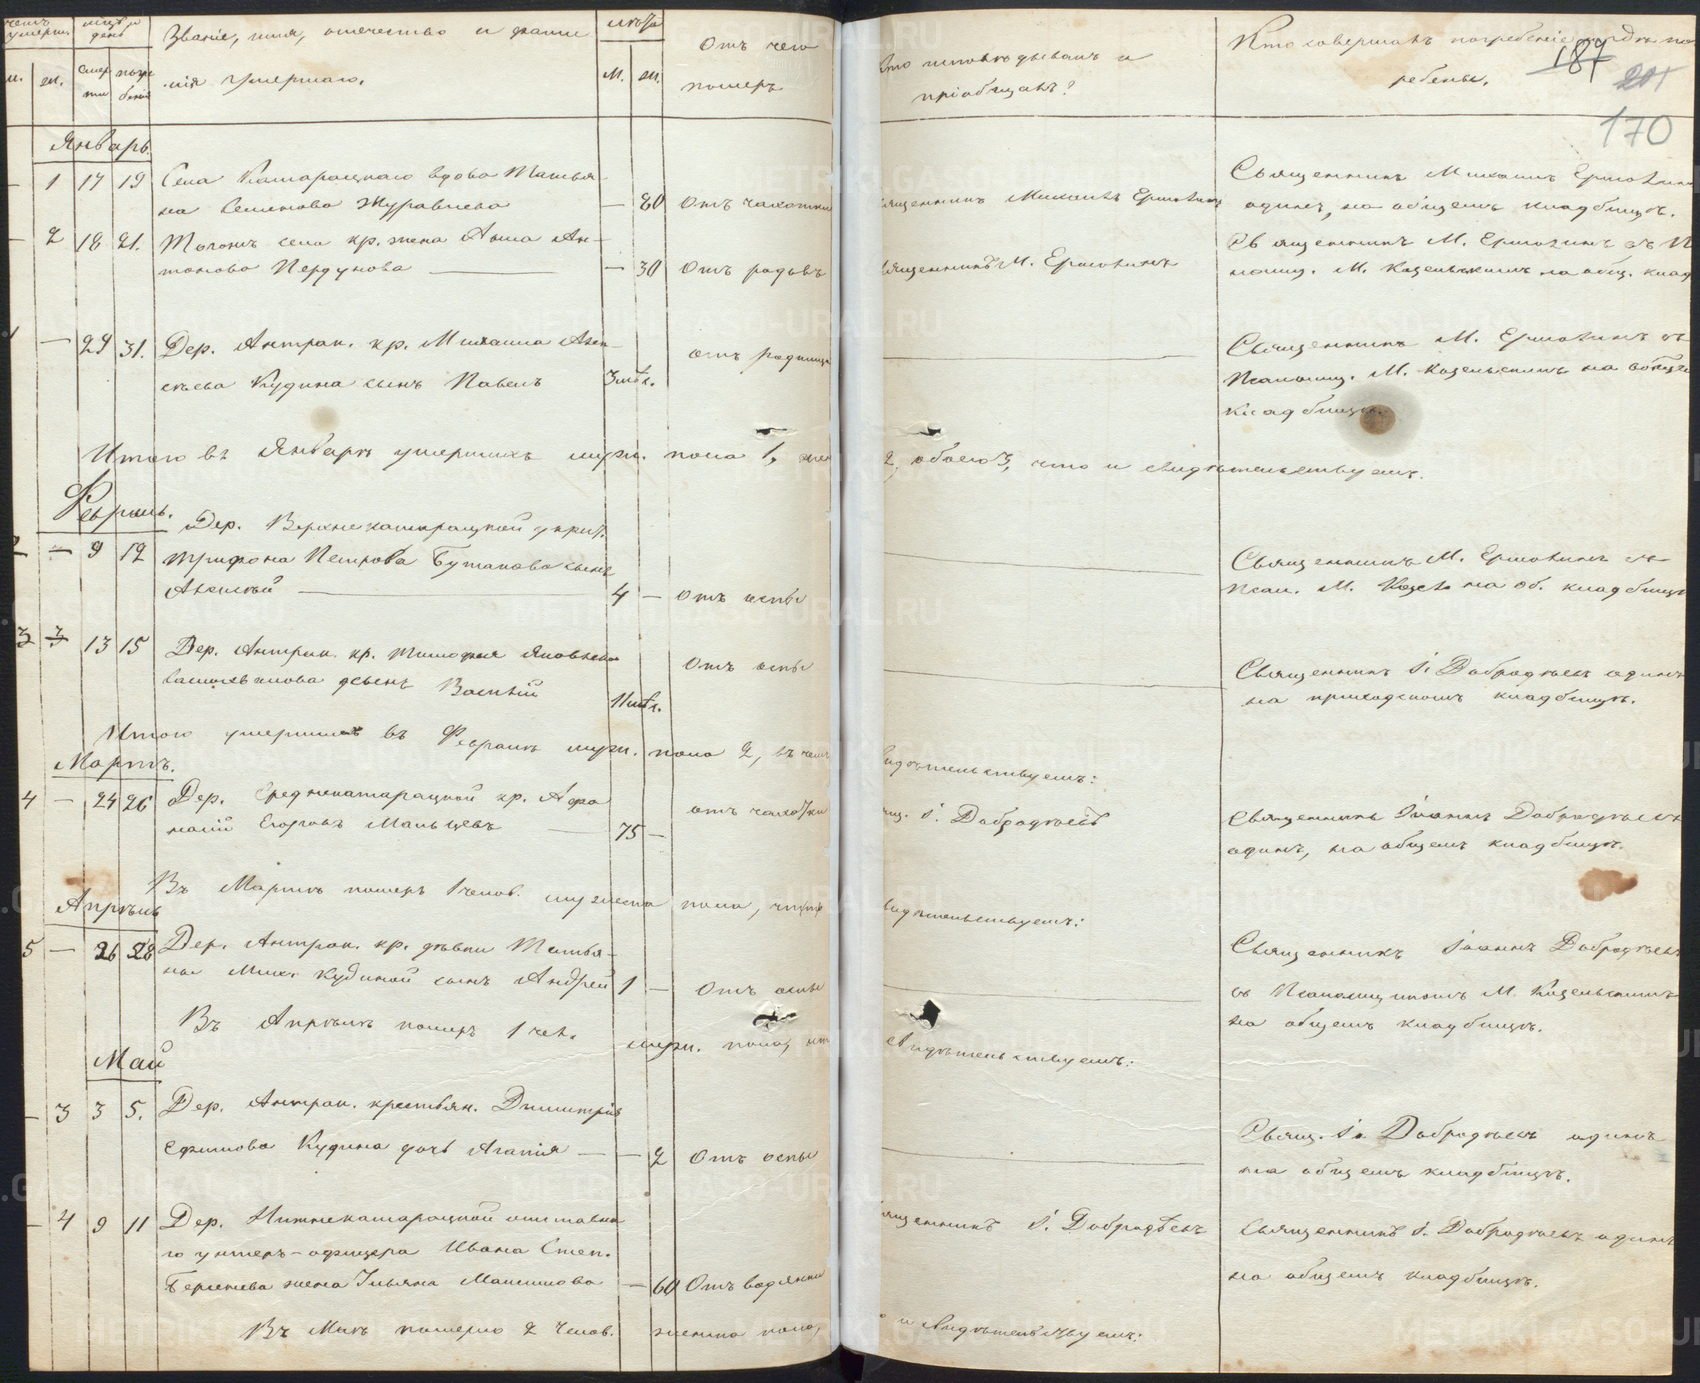 четъ умерш.
мѣсяцъ и день
Званіе, имя, отчество и фами-
лія умершаго.
м.
ж.
смер-
ти
погре-
бенія
лѣта
м.
ж.
Отъ чего
померъ
Кто исповѣдывалъ и
пріобщалъ?
Кто совершалъ погребеніе и гдѣ по-
гребены.
187
201
170
Январь.
— 1 17 19 Села Катарацкаго вдова Татья-
на Семенова Журавлева — 80 Отъ чахотки
Священникъ Михаилъ Ермохинъ
Священникъ Михаилъ Ермохинъ
одинъ, на общемъ кладбищѣ.
— 2 18 21. Тогожъ села кр. жена Анна Ан-
тонова Пердунова — 30 Отъ родовъ
Священникъ М. Ермохинъ
Священникъ М. Ермохинъ съ П
сломщ. М. Козельскимъ на общ. клад
1 — 29 31. Дер. Антрак. кр. Михаила Алек-
сѣева Кудина сынъ Павелъ 3 мѣс. отъ родимца
Священникъ М. Ермохинъ съ
Псаломщ. М. Козельскимъ на общем
кладбищѣ.
Итого въ Январѣ умершихъ муж. пола 1, жен
2, обоего 3, что и свидѣтельствуемъ.
Февраль.
2 — 9 12 Дер. Верхнекатарацкой у кр.
Трифона Петрова Бутакова сынъ
Алексѣй 4 — отъ оспы
Священникъ М. Ермохинъ съ
Псал. М. Козел. на об. кладбищѣ
3 13 15 Дер. Антрак. кр. Тимофея Яковлева
сынъ Василій 11 мѣс. Отъ оспы
Священникъ І. Добродѣевъ одинъ
на приходскомъ кладбищѣ.
Итого умершихъ въ Февралѣ муж. пола 2, въ чемъ
свидѣтельствуемъ:
Мартъ.
4 — 24 26 Дер. Среднекатарацкой кр. Афа-
насій Егоровъ Мальцевъ 75 — отъ чахотки
І. Добродѣевъ
Священникъ Іоаннъ Добродѣевъ
одинъ, на общемъ кладбищѣ.
Въ Мартѣ померъ 1 челов. мужеска пола, что
свидѣтельствуемъ:
Апрѣль
5 — 26 28 Дер. Антрак. кр. дѣвки Татья-
ны Мих. Кудиной сынъ Андрей 1 — Отъ оспы
Священникъ Іоаннъ Добродѣевъ
съ Псаломщикомъ М. Козельскимъ
на общемъ кладбищѣ.
Въ Апрѣлѣ померъ 1 чел. муж. пола, что
свидѣтельствуемъ:
Май
— 3 3 5. Дер. Антрак. крестьян. Димитрія
Ефимова Кудина дочь Агапія — 2 Отъ оспы
Свящ. І. Добродѣевъ одинъ
на общемъ кладбищѣ.
— 4 9 11 Дер. Нижнекатарацкой отставна-
го унтеръ-офицера Ивана Степ.
жена Ульяна Максимова — 60 Отъ водянки
Священникъ І. Добродѣевъ
Священникъ І. Добродѣевъ одинъ
на общемъ кладбищѣ.
Въ Маѣ померло 2 челов. женска пола,
и свидѣтельствуемъ: